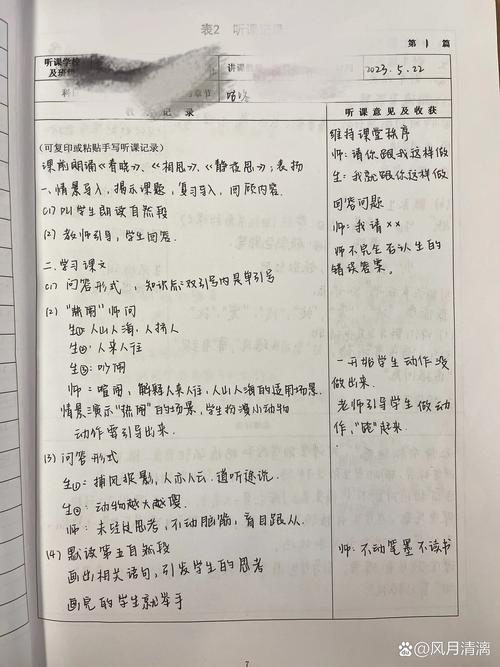 表2 听课记录
第 1 篇
听课学校
及班级
讲课教师
2023.5.22
科目
章节
咕咚
记录
听课意见及收获
(可复印或粘贴手写听课记录)
课前朗诵《春晓》、《相思》、《静夜思》;表扬
一、情景导入,揭示课题,复习导入,回顾内容.
(1) 叫学生朗读自然段
(2) 教师引导,学生回答.
二、学习课文
(1) 问答形式:知识点:双引号内是单引号
(2) "热闹"师问
生①:人山人海,人挤人
生②:人来人往
生③:吵闹
师:喧闹,解释人来人往,人山人海的适用场景.
情景演示"热闹"的场景,学生扮演小动物
动作要引导出来.
(3) 问答形式
生①:捕风捉影,人云亦云,道听途说.
生②:动物越大越傻
师:未经过思考,不动脑筋,盲目跟从.
(4) 默读第五自然段
画出相关语句,引发学生的思考
画完的学生就举手
维持课堂秩序
师:请你跟我这样做
生:我就跟你这样做
回答问题
师:我请××
师不完全否认学生的
错误答案.
一开始学生动作没
做出来.
老师引导学生做动
作,"跑"起来.
师:不动笔墨不读书
7
@风月清漓